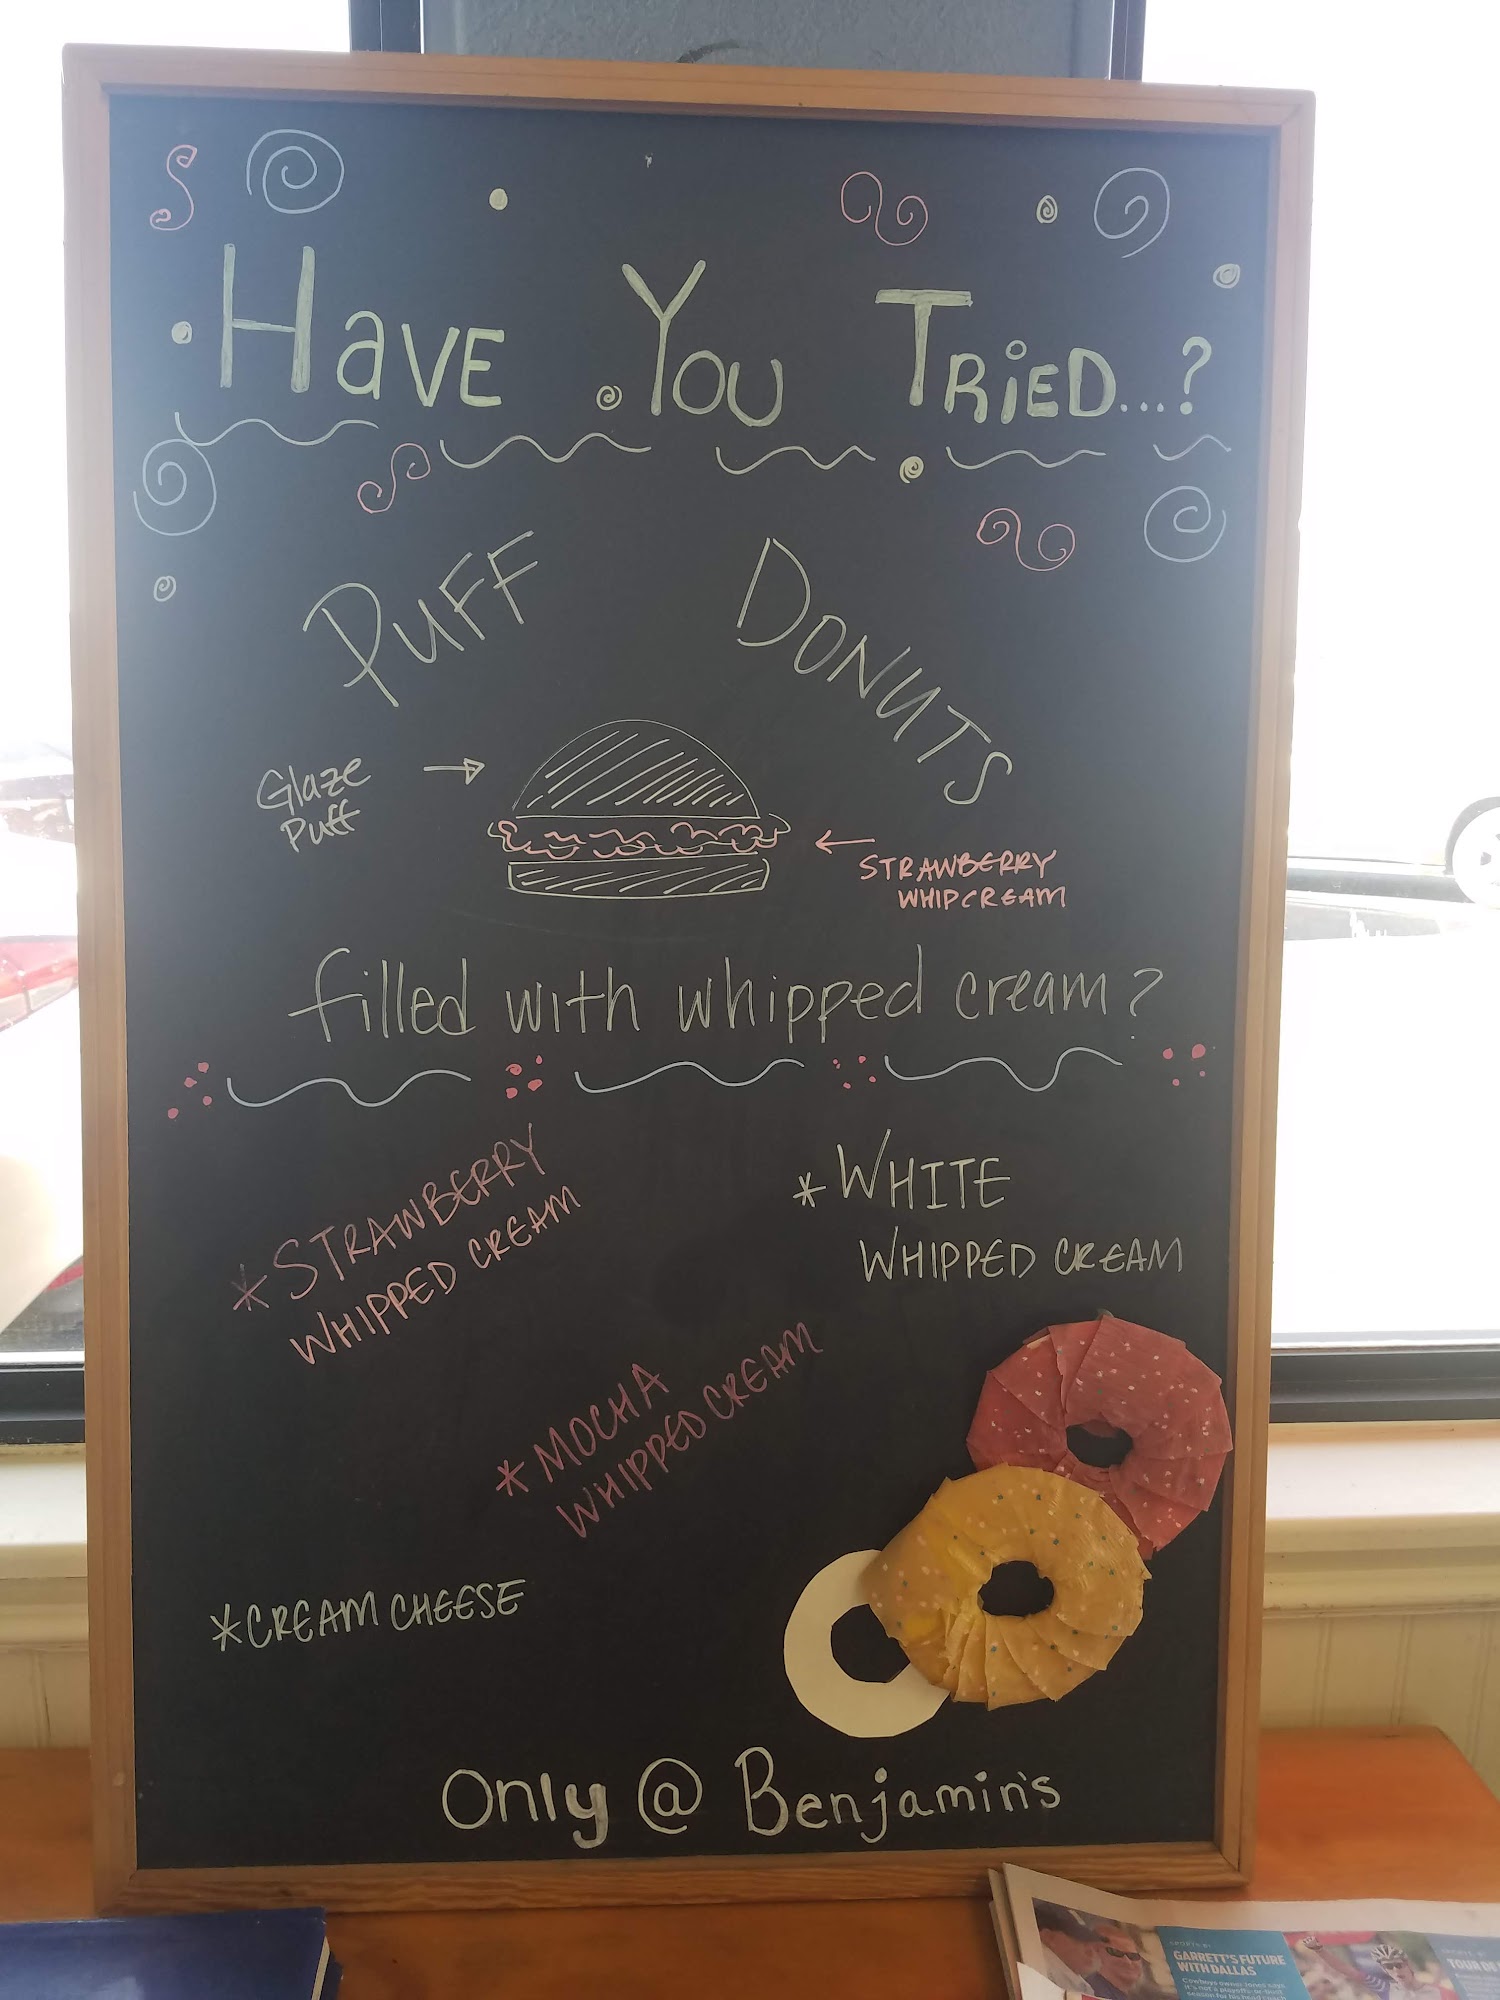 Have You Tried...?
Puff Donuts
Glaze
Puff
STRAWBERRY
WHIPCREAM
filled with whipped cream?
*STRAWBERRY
WHIPPED CREAM
*WHITE
WHIPPED CREAM
*MOCHA
WHIPPED CREAM
*CREAM CHEESE
Only @ Benjamin's
GARRETT'S FUTURE
WITH DALLAS
TOUR DE